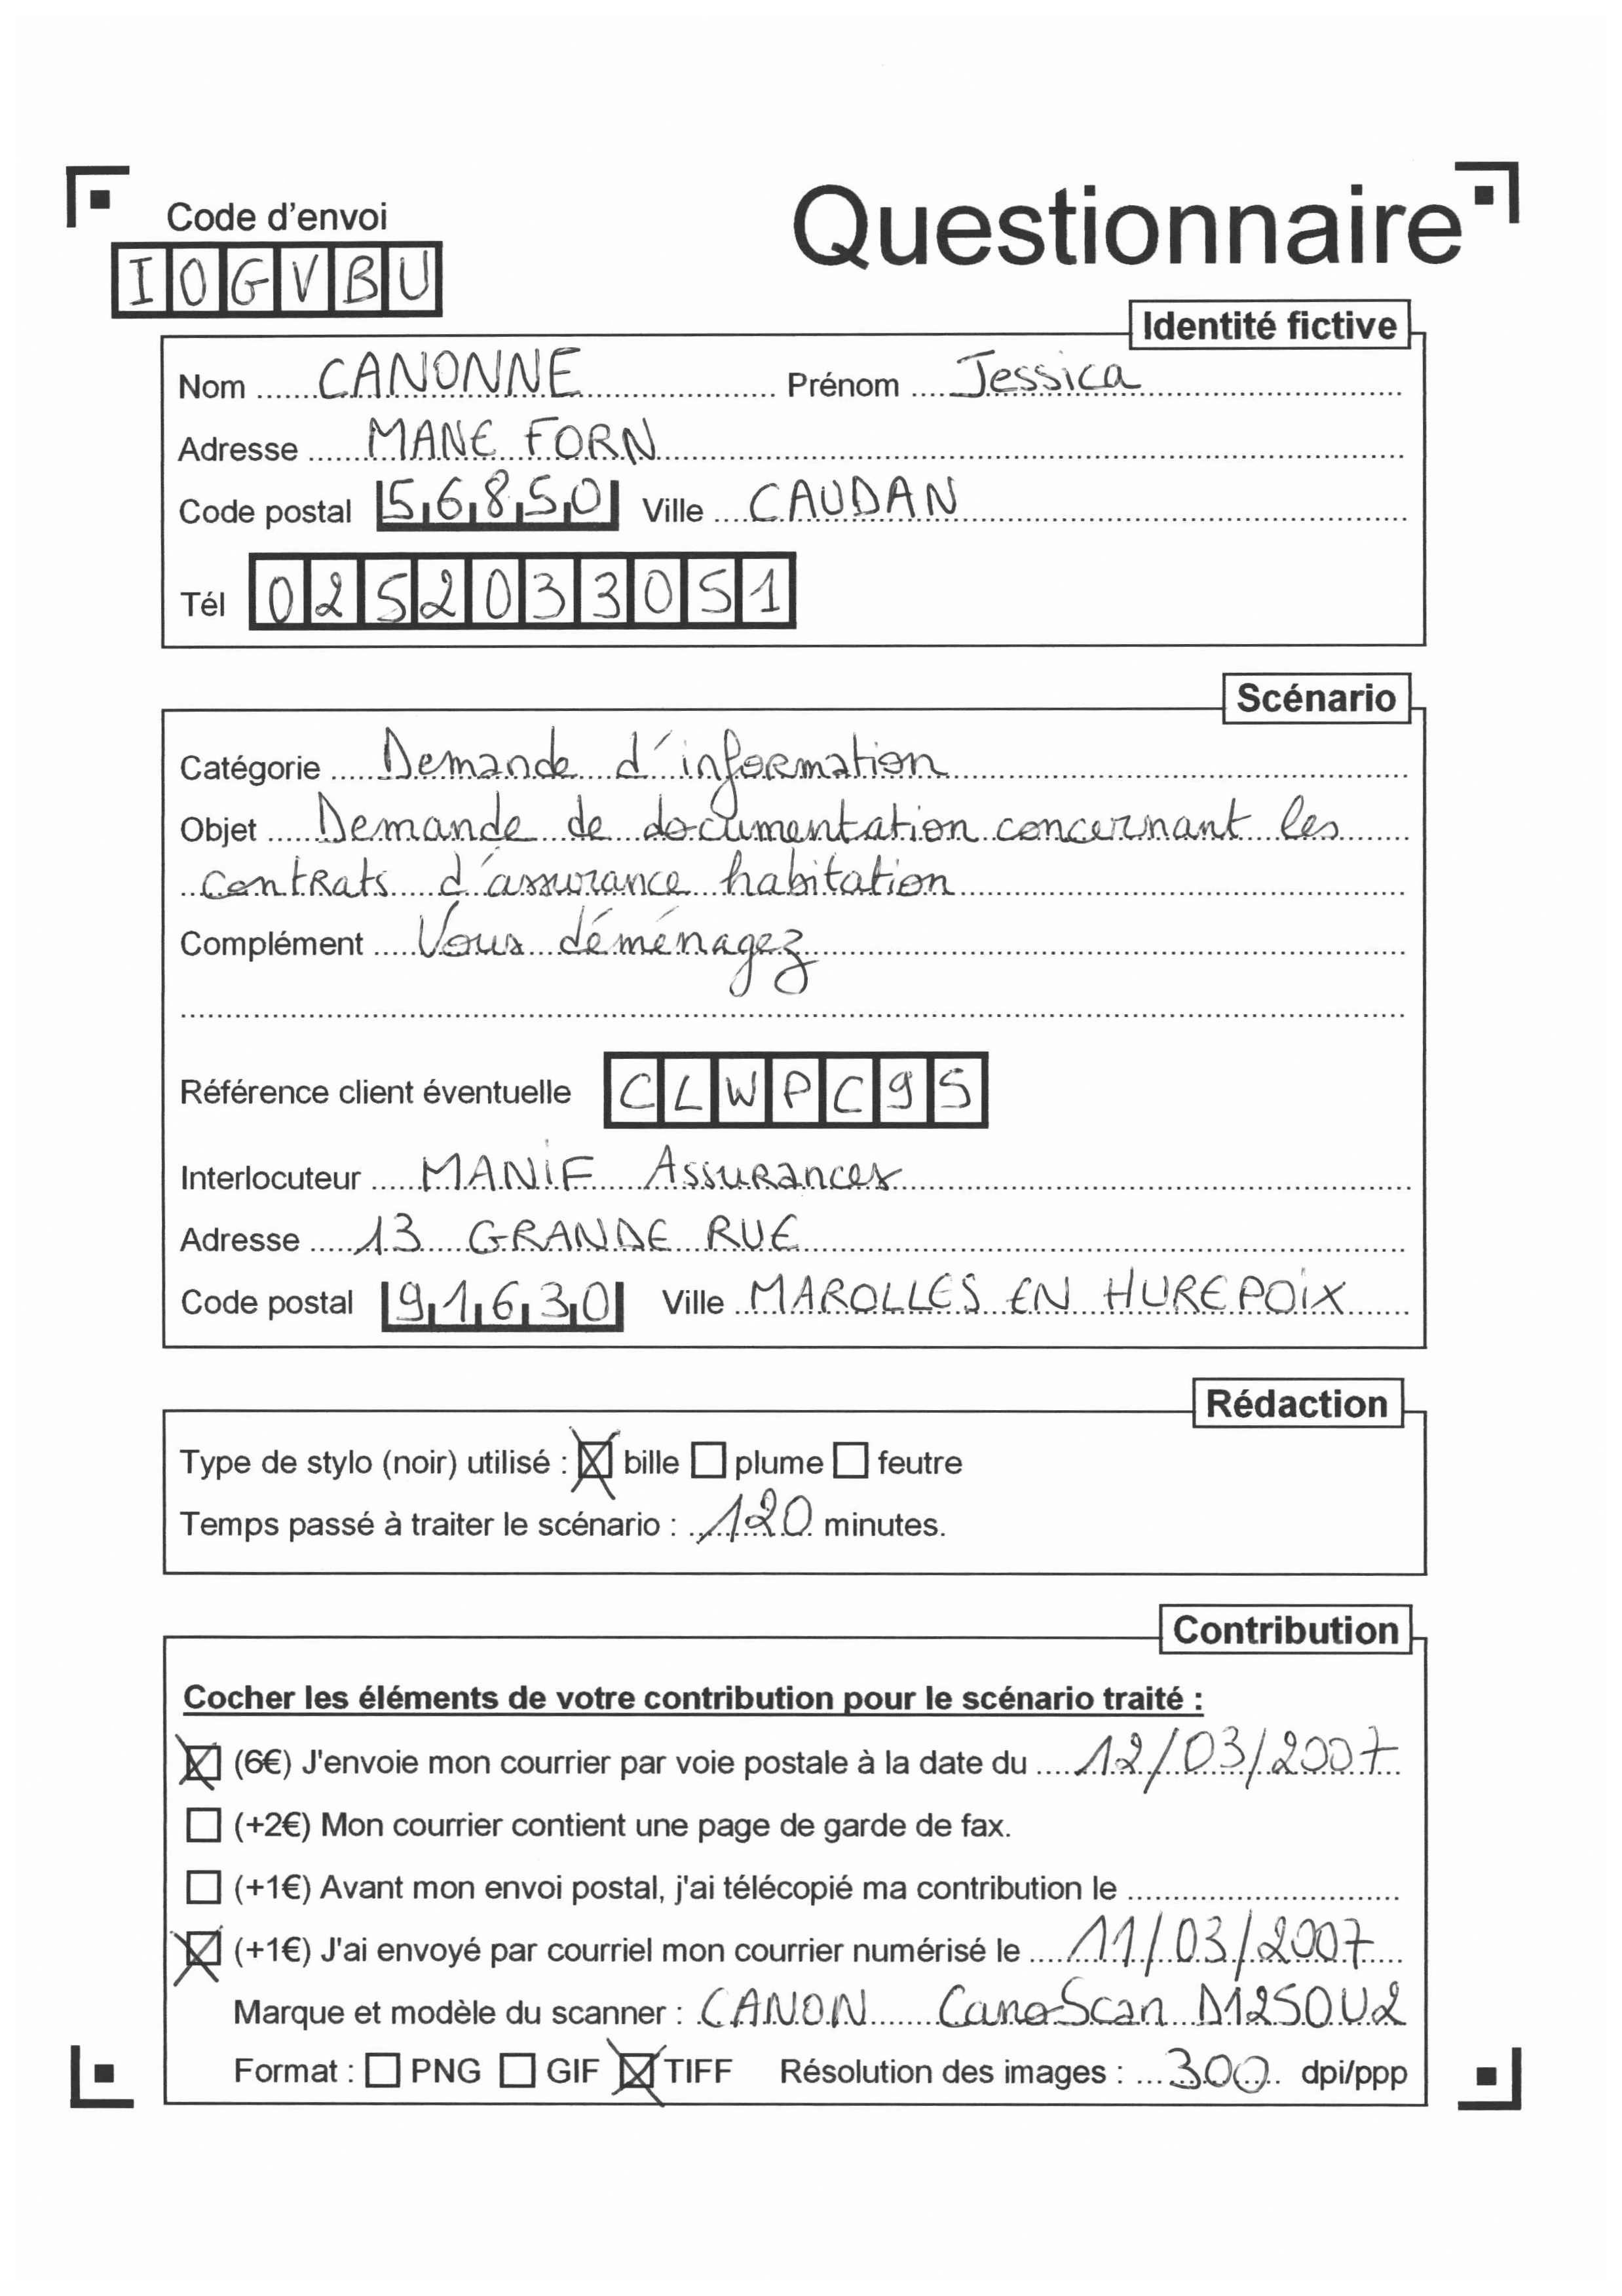 Code d'envoi
Questionnaire
IOGVBU
Identité fictive
Nom CANONNE Prénom Jessica
Adresse MANE FORN
Code postal 56850 Ville CAUDAN
Tél 0252033051
Scénario
Catégorie Demande d'information
Objet Demande de documentation concernant les
contrats d'assurance habitation
Complément Vous déménagez
Référence client éventuelle CLWPC95
Interlocuteur MANIF Assurances
Adresse 13 GRANDE RUE
Code postal 91630 Ville MAROLLES EN HUREPOIX
Rédaction
Type de stylo (noir) utilisé : ☒ bille ☐ plume ☐ feutre
Temps passé à traiter le scénario : 120 minutes.
Contribution
Cocher les éléments de votre contribution pour le scénario traité :
☒ (6€) J'envoie mon courrier par voie postale à la date du 12/03/2007
☐ (+2€) Mon courrier contient une page de garde de fax.
☐ (+1€) Avant mon envoi postal, j'ai télécopié ma contribution le
☒ (+1€) J'ai envoyé par courriel mon courrier numérisé le 11/03/2007
Marque et modèle du scanner : CANON CanoScan D1250U2
Format : ☐ PNG ☐ GIF ☒ TIFF Résolution des images : 300 dpi/ppp